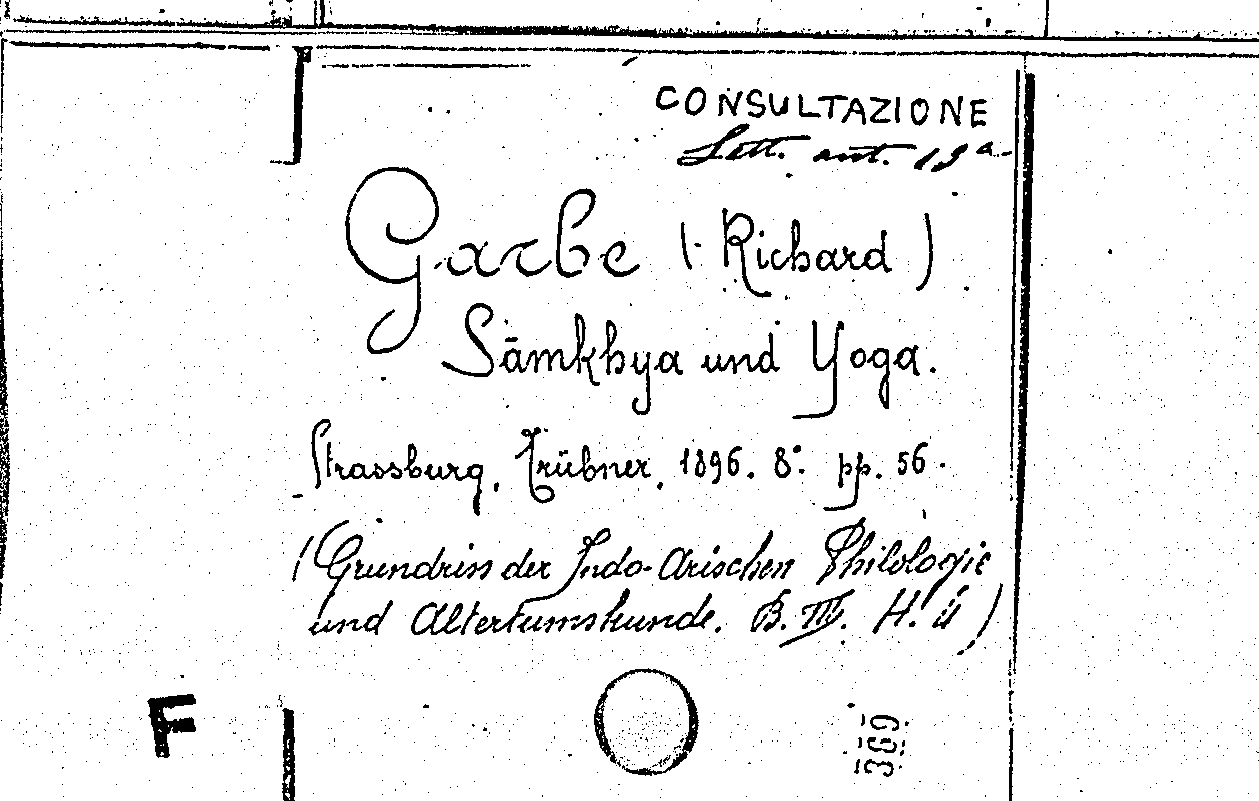 CONSULTAZIONE
Lett. ant. 19ª
Garbe (Richard)
Sāmkhya und Yoga.
Strassburg, Trübner, 1896. 8.° pp. 56.
(Grundriss der Indo-Arischen Philologie
und Altertumskunde. B. III. H. 4)
F
369